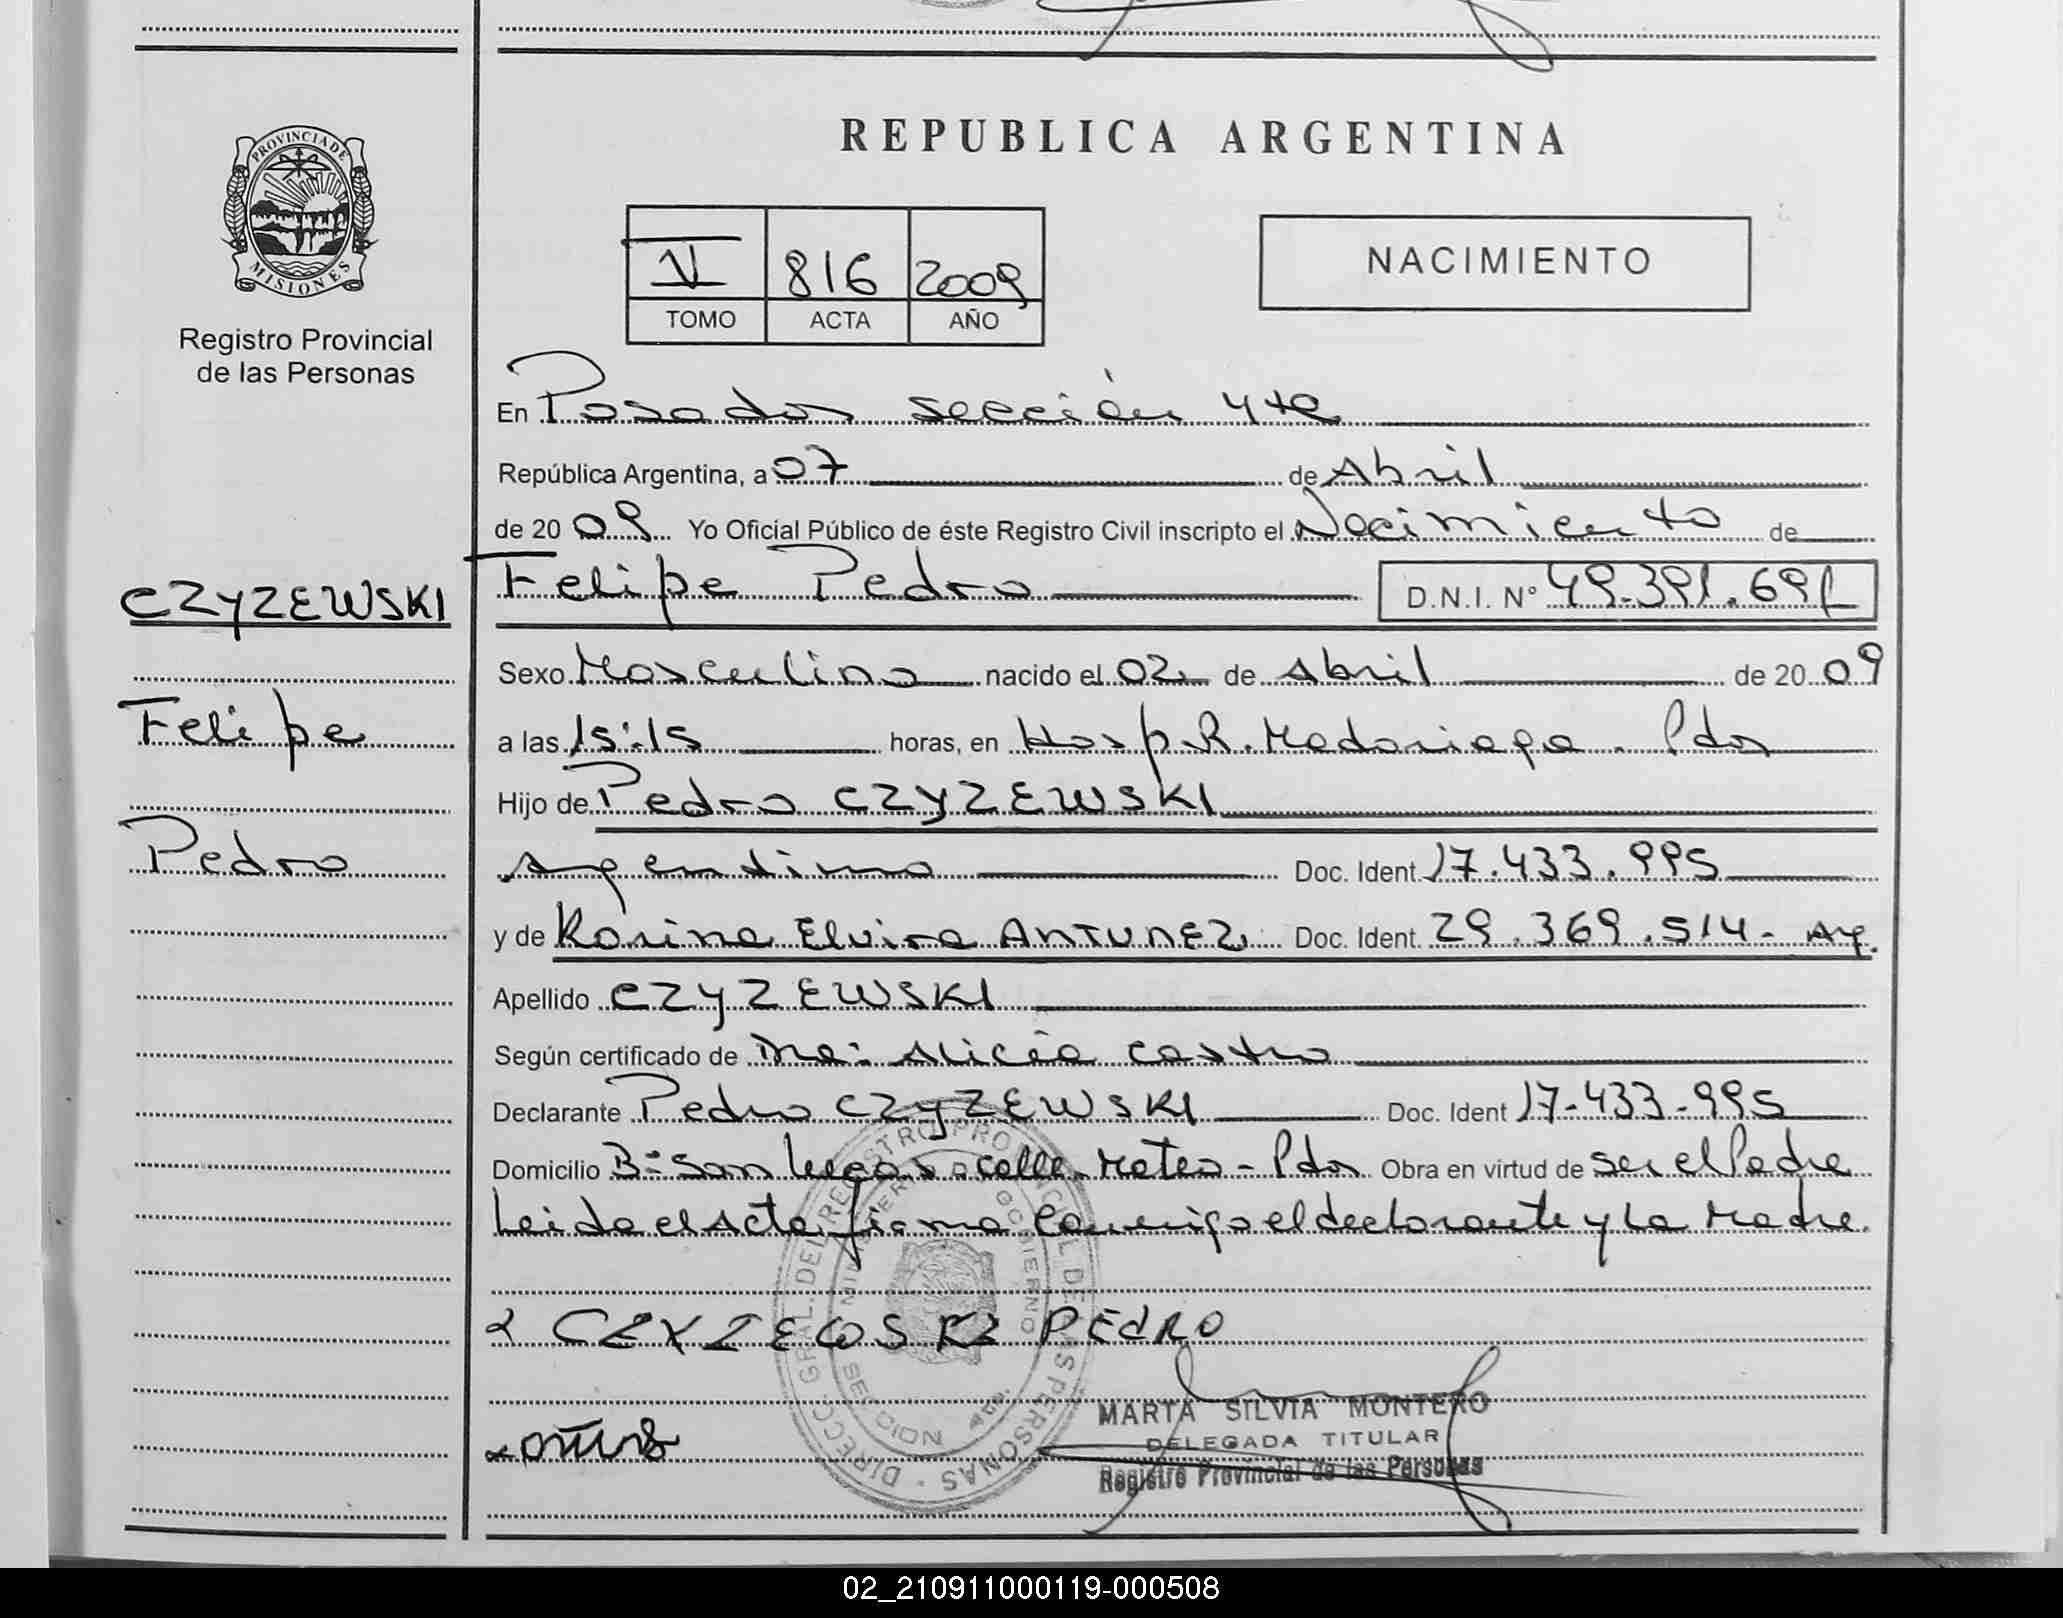 PROVINCIA DE
MISIONES
Registro Provincial
de las Personas
CZYZEWSKI
Felipe
Pedro
REPUBLICA ARGENTINA
816 2009
TOMO ACTA AÑO
NACIMIENTO
En Posadas sección 4ta
República Argentina, a 07 de Abril
de 20 09 Yo Oficial Público de éste Registro Civil inscripto el Nacimiento de
Felipe Pedro D.N.I. Nº 49.391.691
Sexo Masculino nacido el 02 de Abril de 20 09
a las 15:15 horas, en Hosp. R. Madariaga. Pdas
Hijo de Pedro CZYZEWSKI
Argentino Doc. Ident. 17.433.995
y de Karina Elvira ANTUNEZ Doc. Ident. 29.369.514- Arg.
Apellido CZYZEWSKI
Según certificado de Dra: Alicia Castro
Declarante Pedro CZYZEWSKI Doc. Ident 17-433-995
Domicilio Bº San Lucas calle Mateo - Pdas Obra en virtud de ser el Padre
Leida el Acta firma conmigo el declarante y la Madre.
CZYZEWSKI PEDRO
DIRECC. GRAL. DEL REGISTRO PROVINCIAL DE LAS PERSONAS
MINISTERIO GOBIERNO
MARTA SILVIA MONTERO
DELEGADA TITULAR
Registro Provincial de las Personas
02_210911000119-000508